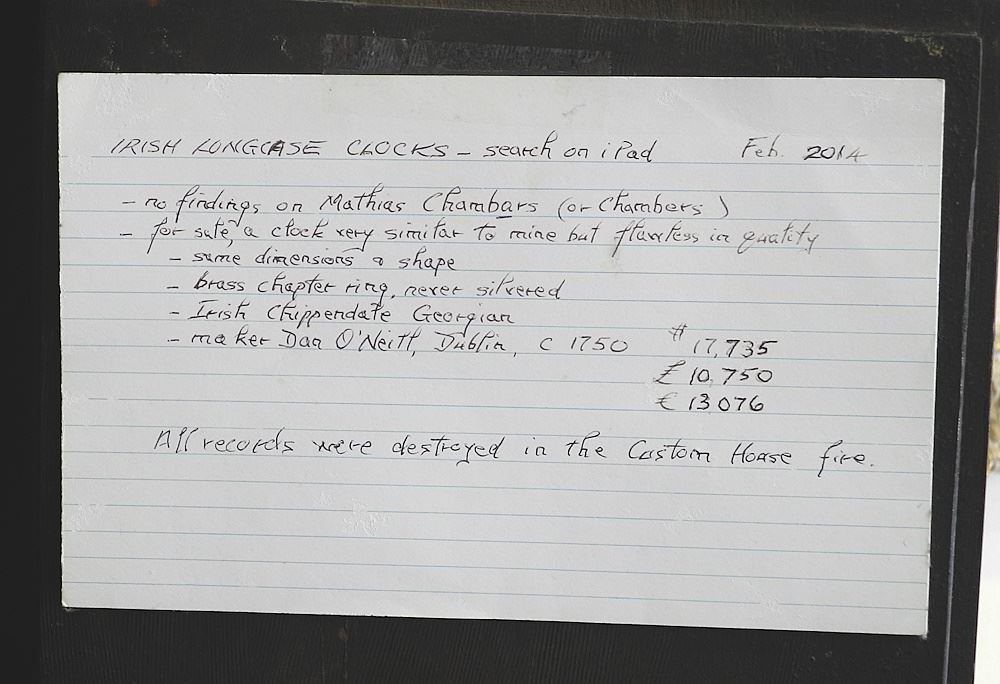 IRISH LONGCASE CLOCKS - search on iPad Feb. 2014
- no findings on Mathias Chambars (or Chambers)
- for sale, a clock very similar to mine but flawless in quality
- same dimensions & shape
- brass chapter ring, never silvered
- Irish Chippendale Georgian
- maker Dan O'Neill, Dublin, c 1750 $ 17,735
£ 10,750
€ 13 076
All records were destroyed in the Custom House fire.